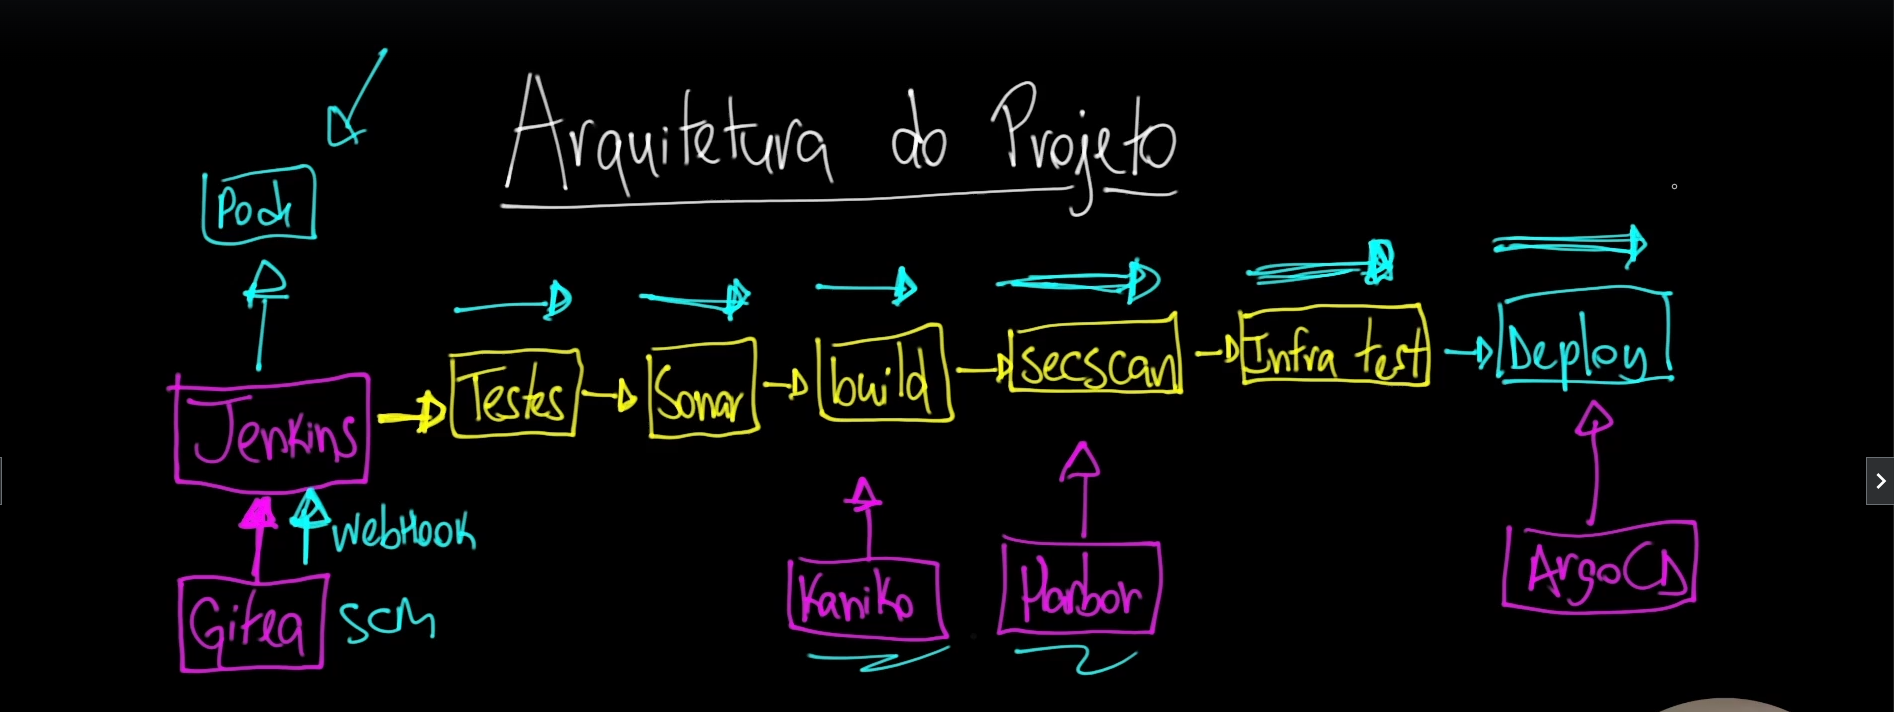 Arquitetura do Projeto
Pod
Jenkins
Testes
Sonar
build
secscan
Infra test
Deploy
WebHook
Gitea
SCM
Kaniko
Harbor
ArgoCD